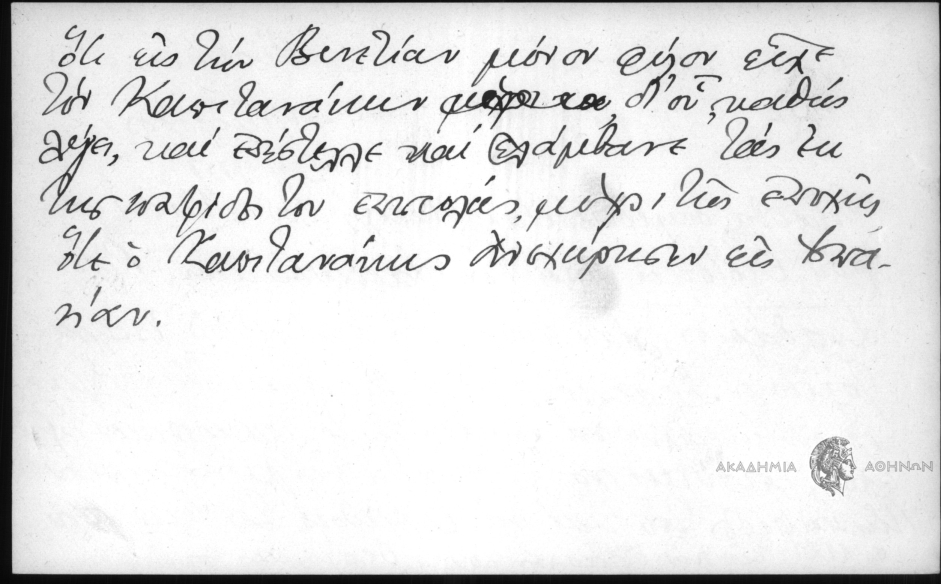 ὅτι εἰς τὴν Βενετίαν μόνον φίλον εἶχε
τὸν Καπιτανάκην δι' οὗ, καθὼς
λέγει, καὶ ἐπέστελλε καὶ ἐλάμβανε τὰς ἐκ
τῆς πατρίδος του ἐπιστολάς, μέχρι τῆς ἐποχῆς
ὅτε ὁ Καπιτανάκης ἀνεχώρησεν εἰς Ἱσπα-
νίαν.
ΑΚΑΔΗΜΙΑ ΑΘΗΝΩΝ